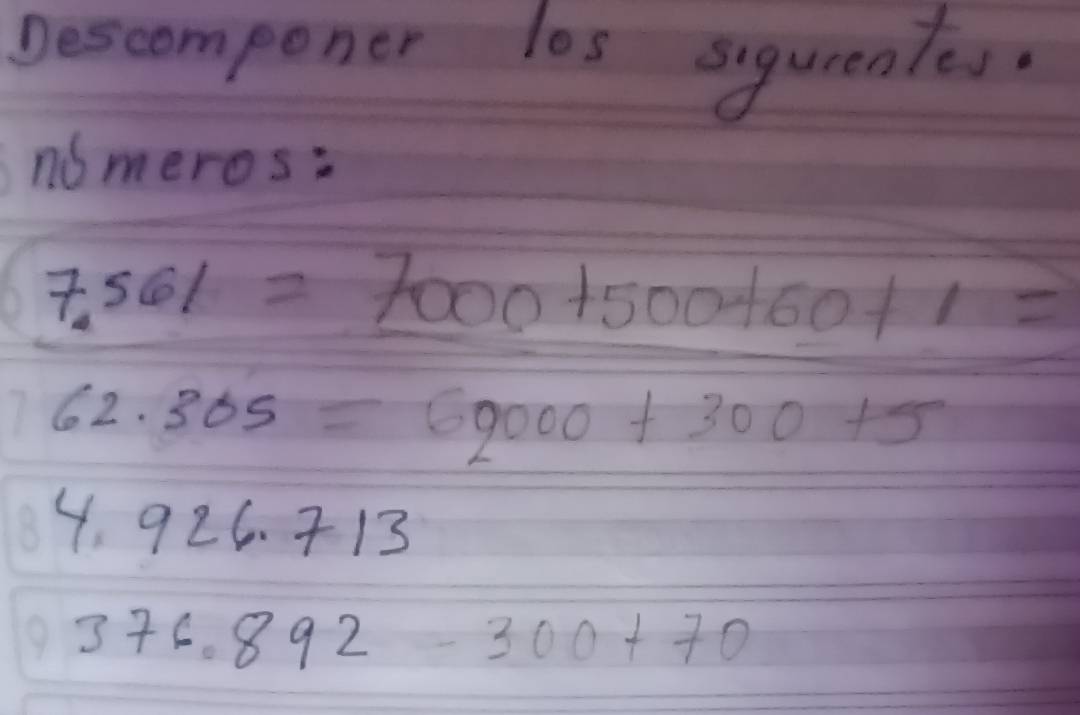 Descomponer los siguientes.
números:
7.561 = 7000+500+60+1 =
62.305 = 62000 + 300 +5
4.926.713
376.892 - 300+70